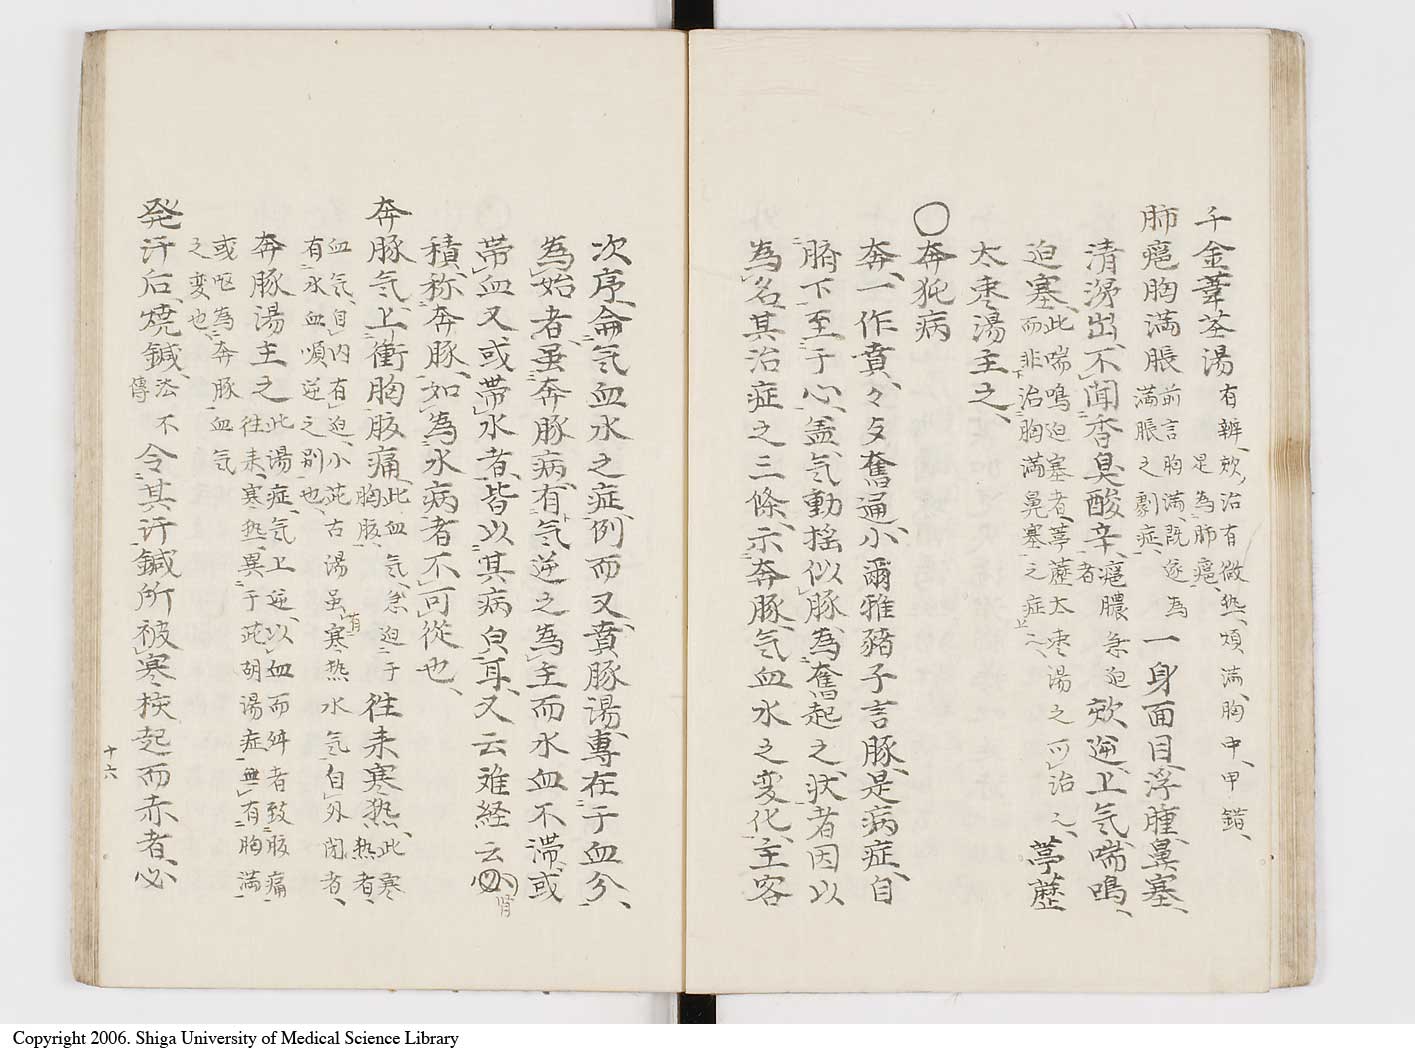 千金葦茎湯有辨、欬、治有微熱、煩満、胸中、甲錯、是為肺癰、
肺癰胸満脹前言胸満、既遂為満脹之劇症、一身面目浮腫、鼻塞、
清涕出、不聞香臭酸辛、癰膿者兼迫欬逆、上气、喘鳴、
迫塞、此喘鳴迫塞者、葶藶大枣湯之可治之、而非下治胸満鼻塞之症上之、葶藶
大枣湯主之、
〇奔㹠病
奔、一作賁、々与奮通、小爾雅豬子言豚、是病症、自
臍下至于心、盖、气動揺似豚為奮起之状、者因以
為名、其治症之三條、示奔豚、气血水之変化、主客
次序、侖气血水之症、例而又、賁豚湯、專在于血分、
為始者、虽奔豚病、有气逆之為主而水血不滞、或
帯血又或帯水者、皆以其病白耳、又云难経云心腎
積、称奔豚、如為水病者不可從也、
奔豚气、上衝胸腹痛、此血气急迫于胸腹、往来寒热、此寒热者、
血气、自内有迫、小茈古湯虽有寒热水气自外閉者、
有水血順逆之别也、
奔豚湯主之此湯症、气上逆、以血而舛者致腹痛往来、寒热、異于茈胡湯症無有胸満
或呕為奔豚血气
之变也
発汗后、焼鍼、法傳不令其汗鍼所被寒核起而赤者、必
十六
Copyright 2006. Shiga University of Medical Science Library